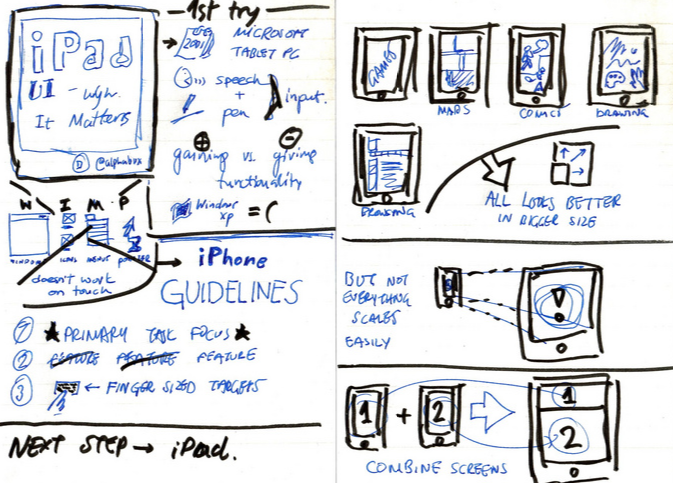 iPad
UI - why
It Matters
@alphabox
1st try
2001
MICROSOFT
TABLET PC
speech
+
pen
input.
+
-
gaining vs. giving
functionality
Windows
XP = (
W I M P
WINDOW ICONS MENU POINTER
doesn't work
on touch
→ iPhone
GUIDELINES
1 ★ PRIMARY TASK FOCUS ★
2 FEATURE FEATURE FEATURE
3 ← FINGER SIZED TARGETS
NEXT STEP → iPad.
GAMES
MAPS
COMICS
DRAWING
BROWSING
ALL LOOKS BETTER
IN BIGGER SIZE
BUT NOT
EVERYTHING
SCALES
EASILY
!
1 + 2
1
2
COMBINE SCREENS